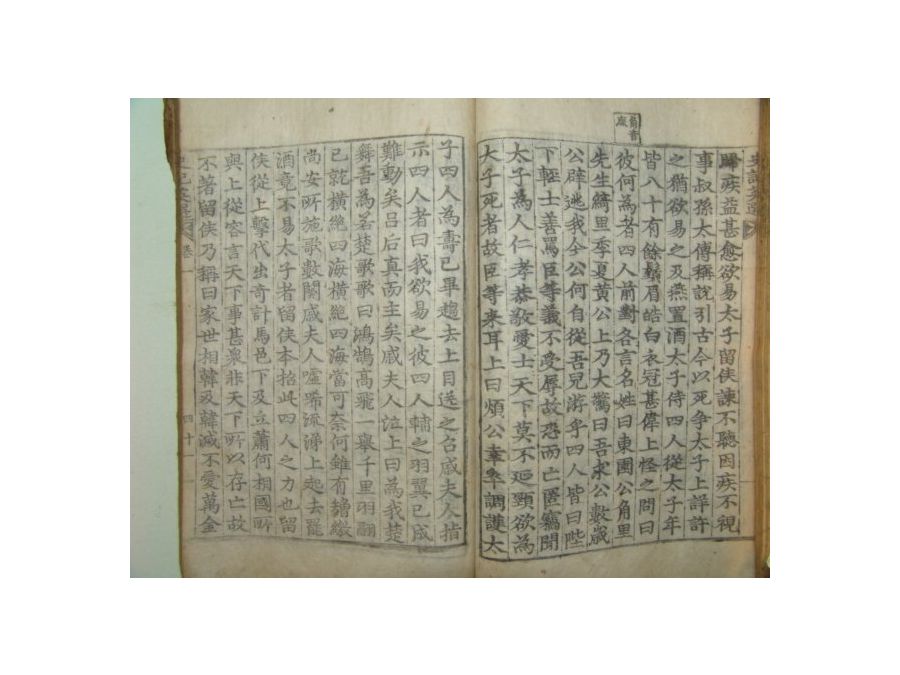 歸疾益甚愈欲易太子留侯諫不聽因疾不視
事叔孫太傅稱說引古今以死爭太子上詳許
之猶欲易之及燕置酒太子侍四人從太子年
皆八十有餘鬚眉皓白衣冠甚偉上怪之問曰
彼何為者四人前對各言名姓曰東園公角里
先生綺里季夏黃公上乃大驚曰吾求公數歲
公辟逃我今公何自從吾兒游乎四人皆曰陛
下輕士善罵臣等義不受辱故恐而亡匿竊聞
太子為人仁孝恭敬愛士天下莫不延頸欲為
太子死者故臣等來耳上曰煩公幸卒調護太
子四人為壽已畢趨去上目送之召戚夫人指
示四人者曰我欲易之彼四人輔之羽翼已成
難動矣呂后真而主矣戚夫人泣上曰為我楚
舞吾為若楚歌歌曰鴻鵠高飛一舉千里羽翮
已就橫絕四海橫絕四海當可奈何雖有矰繳
尚安所施歌數闋戚夫人噓唏流涕上起去罷
酒竟不易太子者留侯本招此四人之力也留
侯從上擊代出奇計馬邑下及立蕭何相國所
與上從容言天下事甚衆非天下所以存亡故
不著留侯乃稱曰家世相韓及韓滅不愛萬金
史記英選 卷一 四十一